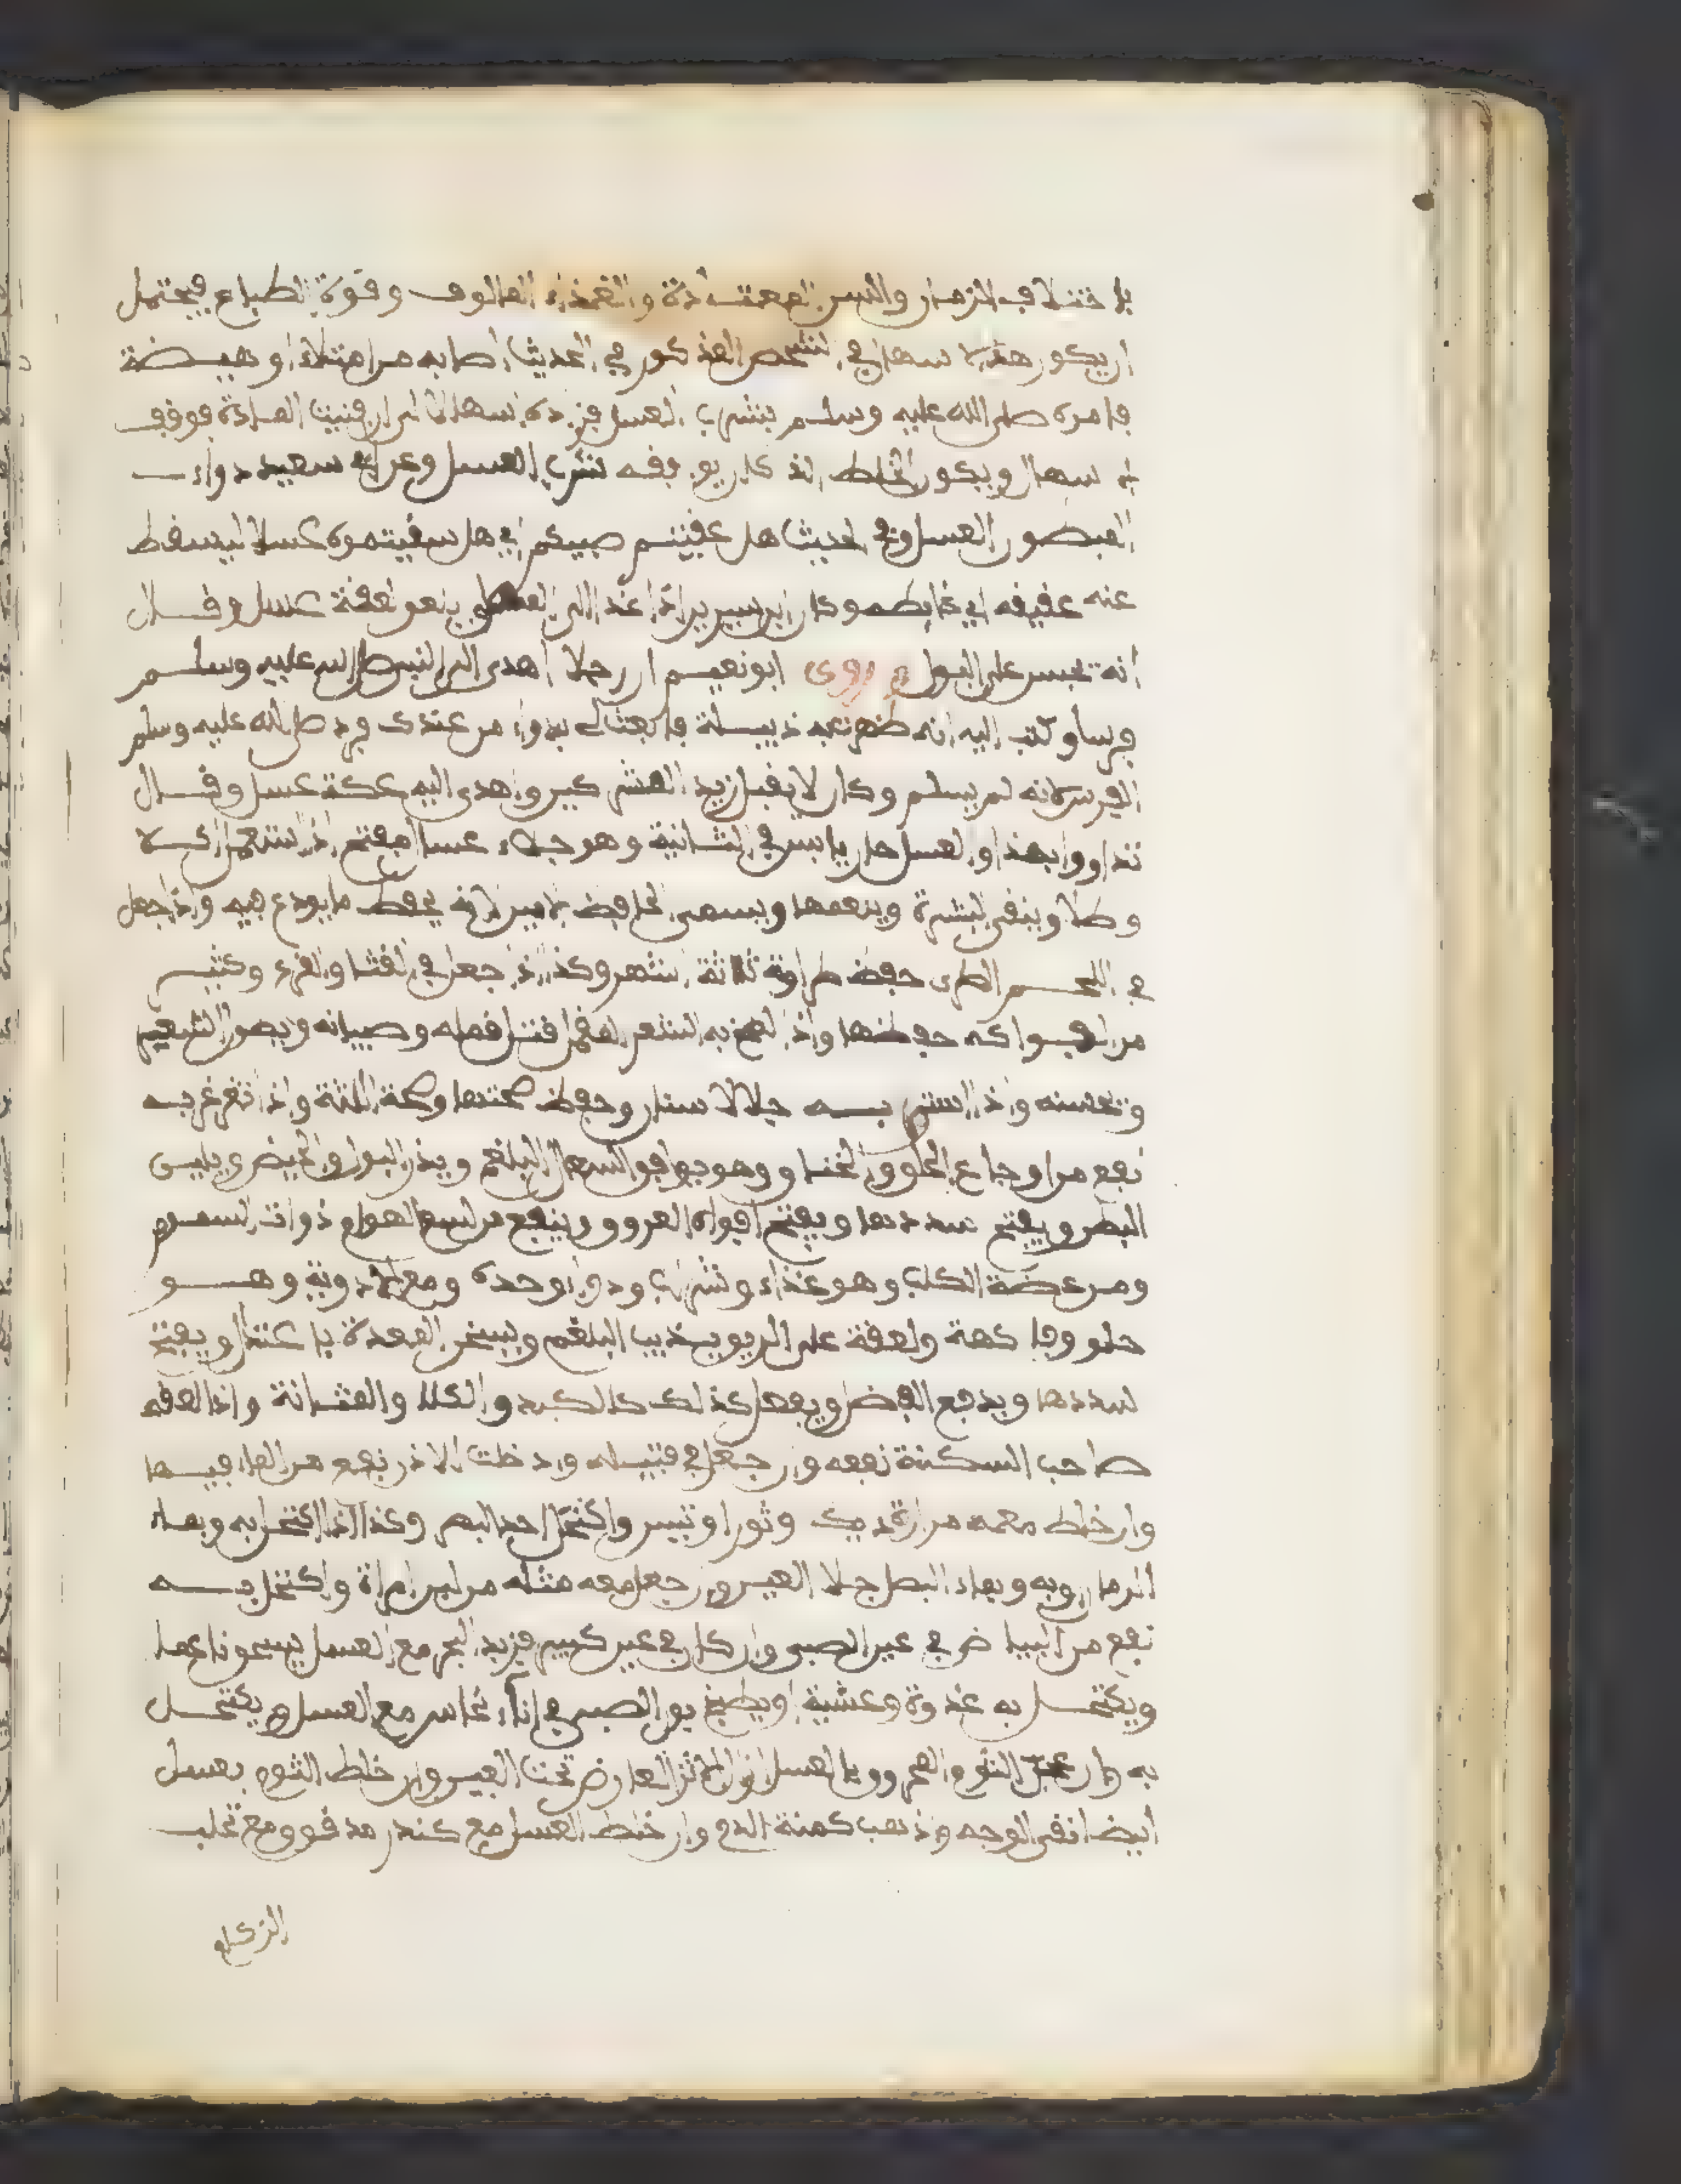 باختلاف الزمان والسن المعتادة والغذاء المالوف وقوة الطباع فيحتمل
ان يكون هذا الاسهال في الشخص المذكور في الحديث اصابه من امتلاء او هيضة
فامره صلى الله عليه وسلم بشرب العسل فزيده اسهالا الى ان فنيت المادة فوقف
الاسهال ويكون الخلط الذي كان يوافقه شرب العسل وعن ابي سعيد دواء
المبطون العسل وفي الحديث هل عفيتم صبيكم اي هل سقيتموه عسلا ليسقط
عنه عفيفه اي غايطه وكان ابن سيرين اذا غدا الى بلعق لعقة عسل وقال
انه تحبس على البول وروى ابو نعيم ان رجلا اهدى الى النبي صلى الله عليه وسلم
فرسا وكتب اليه انه ظهر به ذبيلة فابعث الي بدواء من عندك فرد صلى الله عليه وسلم
الفرس لانه لم يسلم وكان لا يقبل زبد المشركين واهدى اليه عكة عسل وقال
تداووا بهذا والعسل حار يابس في الثانية وهو جلاء عسا مفتح اذا استعمل اكلا
وطلا وينقي البشرة وينعمها ويسمى الحافظ الامين لانه يحفظ ما يودع فيه واذا جعل
في اللحم الطري حفظ طراوته ثلاثة اشهر وكذا اذا جعل في القثا والقرع وكثير
من الفواكه حفظها واذا لطخ به الشعر المقمل قتل قمله وصيبانه ويطول الشعر
وتحسنه واذا استن به جلا الاسنان وحفظ صحتها وصحة اللثة واذا تغرغر به
نفع من اوجاع الحلق والخناق وهو يوافق السعال البلغمي ويدر البول والحيض ويلين
البطن ويفتح سددها ويفتح افواه العروق وينفع من لسع الهوام ذوات السموم
ومن عضة الكلب وهو غذاء وشراب ودواء وحده ومع الادوية وهو
حلو وفاكهة ولعقة على الريق يذيب البلغم ويسخن المعدة باعتدال ويفتح
سددها ويدفع الفضل ويفعل كذلك كالكبد والكلا والمثانة واذا لعقه
صاحب السكتة نفعه وان جعل في فتيلة وادخلت الاذن نفع من الماء فيها
وان خلط معه مرارة ديك وثور او تيس واكتحل احد البصر وكذا اذا اكتحل به وبماء
الرمان وبه وبماء البصل جلا العين وان جعل معه مثله من لبن امراة واكتحل به
نفع من البياض في عين الصبي وان كان في عين كبير فزبد البحر مع العسل يسحق ناعما
ويكتحل به غدوة وعشية او يطبخ بول الصبي في اناء نحاس مع العسل ويكتحل
به وان عجن الثوم المحروق بالعسل ازال الاثر العارض تحت العين وان خلط الثوم بعسل
ايضا نقى الوجه واذهب كمنة الدم وان خلط العسل مع كندر مدقوق ومع تحلب